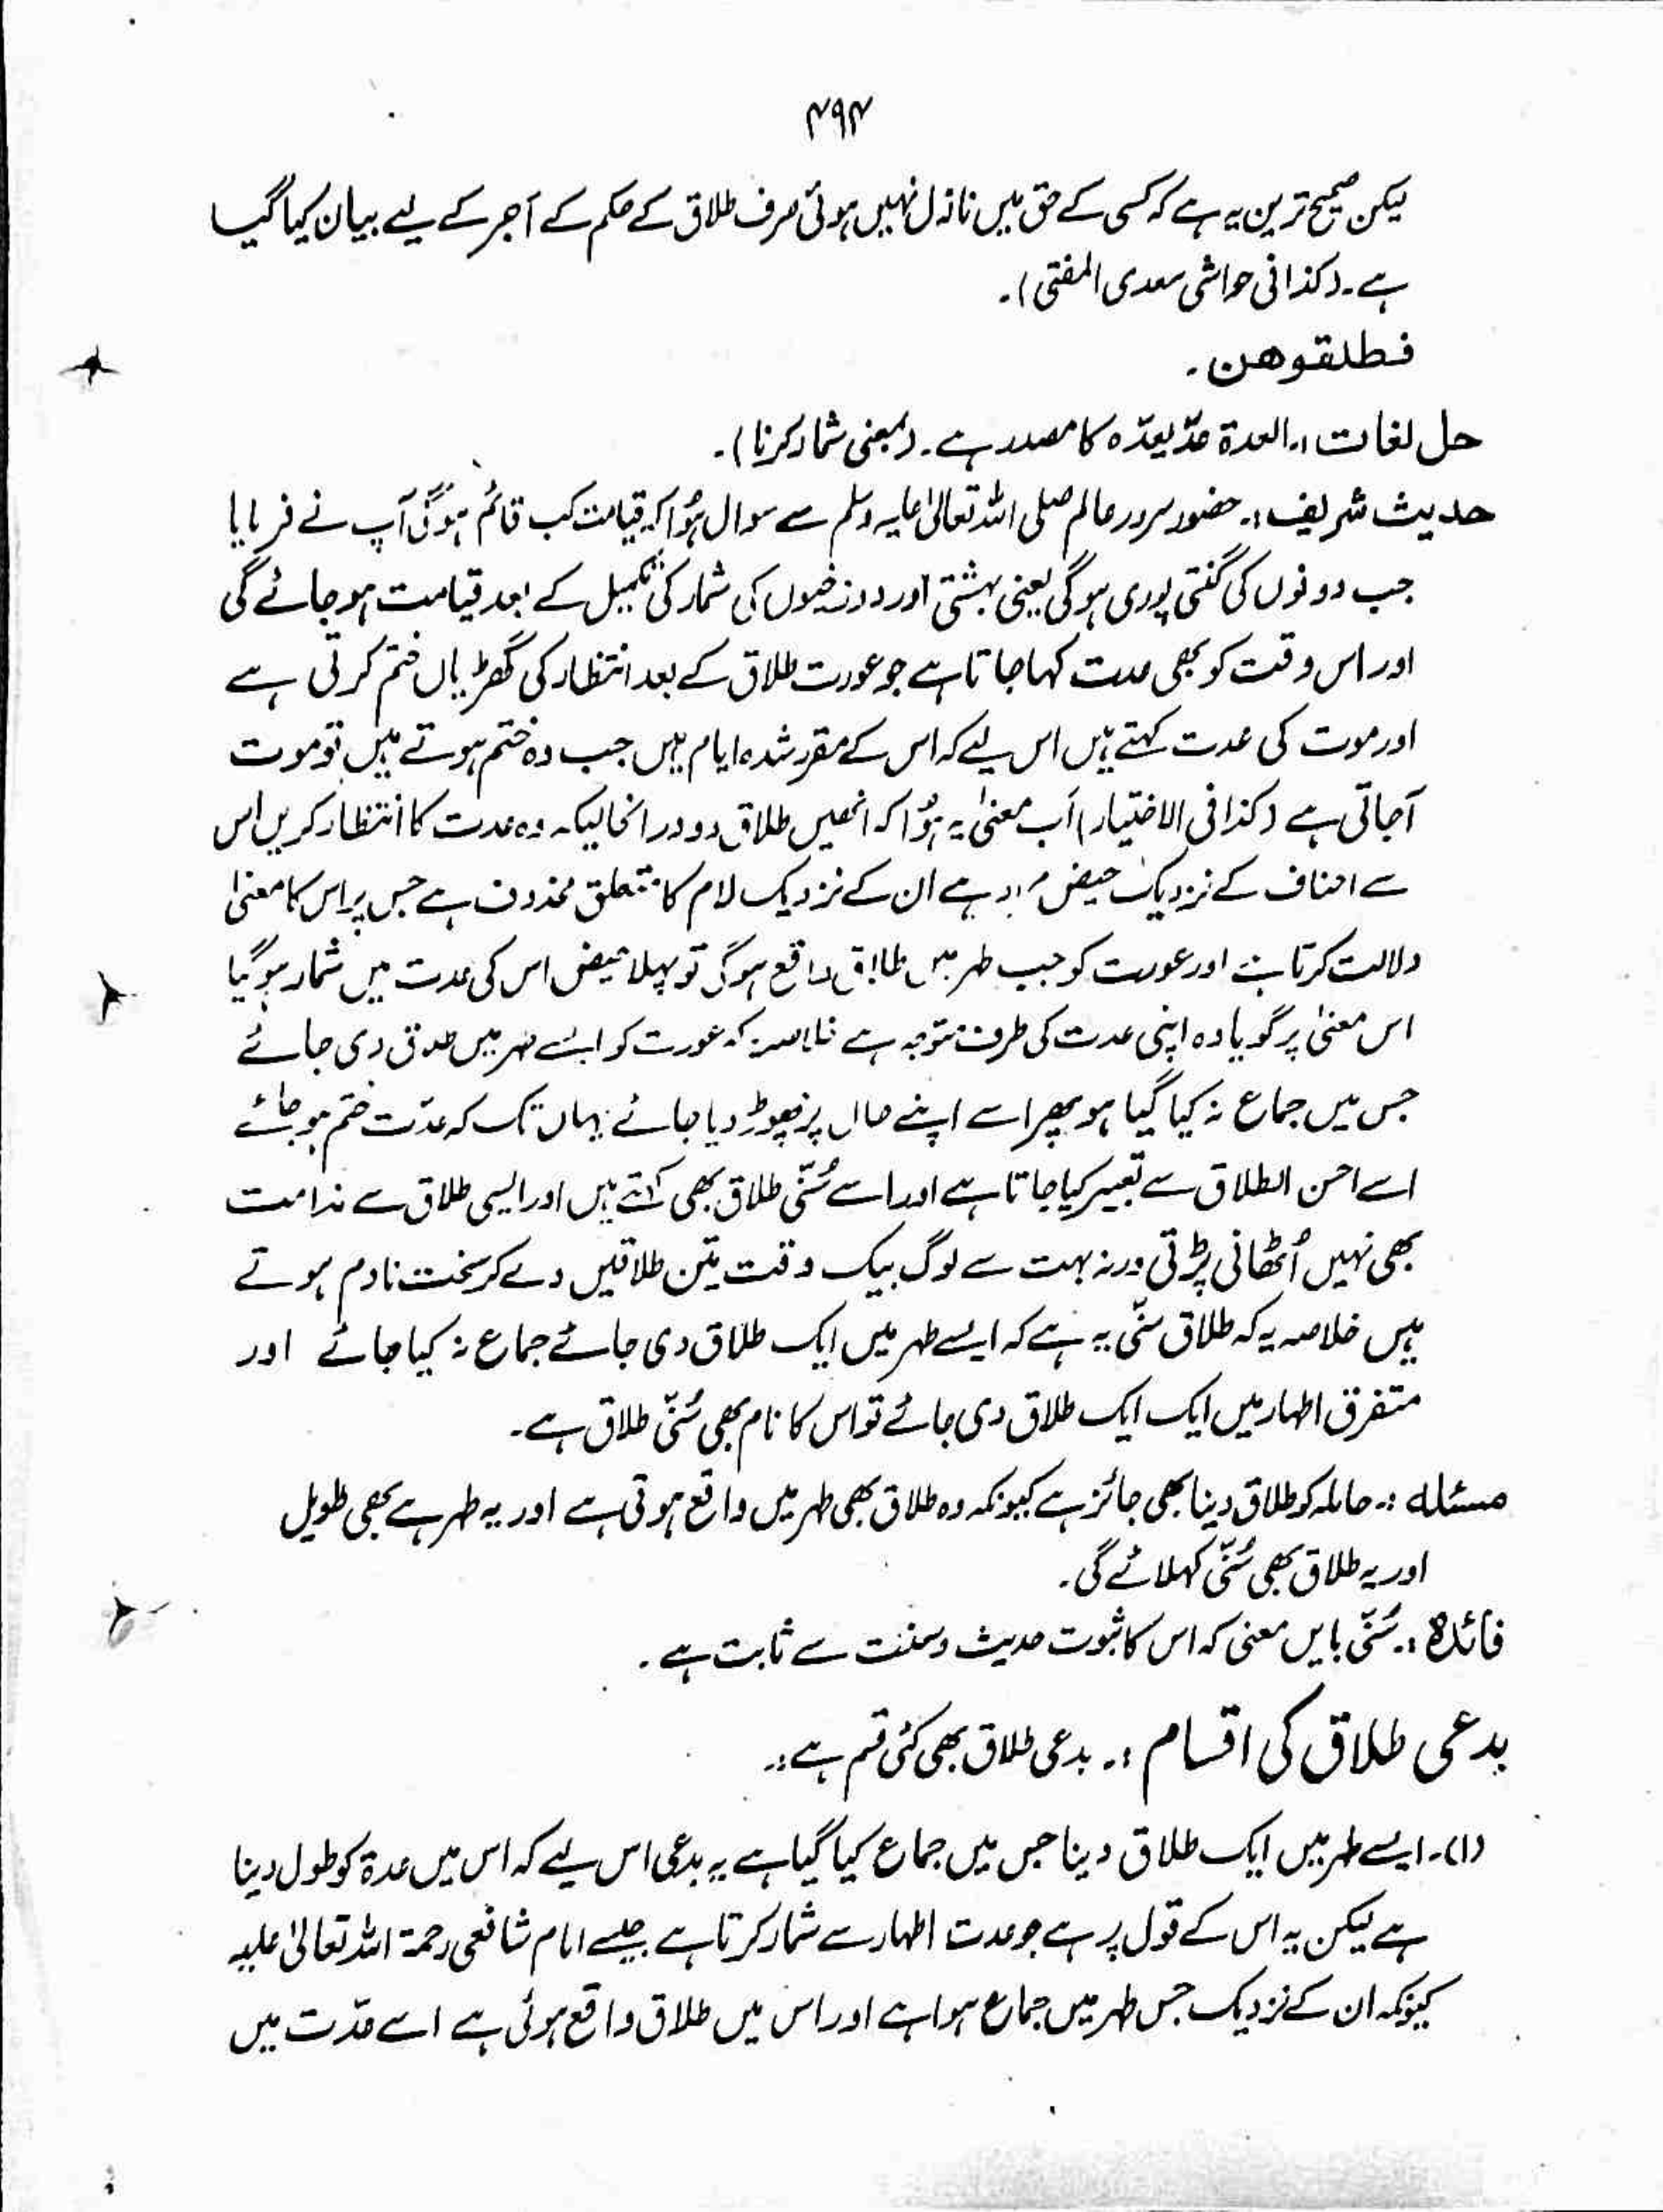 ۴۹۴
لیکن صحیح ترین یہ ہے کہ کسی کے حق میں نازل نہیں ہوئی صرف طلاق کے حکم کے آجر کے لیے بیان کیا گیا
ہے۔ (کذافی حواشی سعدی المفتی)۔
فطلقوھن۔
حل لغات :۔ العدۃ عدّ یعدّہ کا مصدر ہے۔ (بمعنی شمار کرنا)۔
حدیث شریف :۔ حضور سرور عالم صلی اللہ تعالیٰ علیہ وسلم سے سوال ہُوا کہ قیامت کب قائم ہوگی آپ نے فرمایا
جب دونوں کی گنتی پوری ہوگی یعنی بہشتی اور دوزخیوں کی شمار کی تکمیل کے بعد قیامت ہو جائے گی
اور اس وقت کو بھی عدت کہا جاتا ہے جو عورت طلاق کے بعد انتظار کی گھڑیاں ختم کرتی ہے
اور موت کی عدت کہتے ہیں اس لیے کہ اس کے مقرر شدہ ایام ہیں جب وہ ختم ہوتے ہیں تو موت
آجاتی ہے (کذافی الاختیار) اَب معنیٰ یہ ہُوا کہ انھیں طلاق دو درانحالیکہ وہ عدت کا انتظار کریں اس
سے احناف کے نزدیک حیض مراد ہے ان کے نزدیک لام کا متعلق محذوف ہے جس پر اس کا معنیٰ
دلالت کرتا ہے اور عورت کو جب طہر میں طلاق واقع ہوگی تو پہلا حیض اس کی عدت میں شمار ہوگیا
اس معنیٰ پر گویا وہ اپنی عدت کی طرف متوجہ ہے خلاصہ یہ کہ عورت کو ایسے طہر میں طلاق دی جائے
جس میں جماع نہ کیا گیا ہو پھر اسے اپنے حال پر چھوڑ دیا جائے یہاں تک کہ عدّت ختم ہو جائے
اسے احسن الطلاق سے تعبیر کیا جاتا ہے اور اسے سُنّی طلاق بھی کہتے ہیں اور ایسی طلاق سے ندامت
بھی نہیں اُٹھانی پڑتی ورنہ بہت سے لوگ بیک وقت تین طلاقیں دے کر سخت نادم ہوتے
ہیں خلاصہ یہ کہ طلاق سنّی یہ ہے کہ ایسے طہر میں ایک طلاق دی جائے جماع نہ کیا جائے اور
متفرق اطہار میں ایک ایک طلاق دی جائے تو اس کا نام بھی سُنّی طلاق ہے۔
مسئلہ :۔ حاملہ کو طلاق دینا بھی جائز ہے کیونکہ وہ طلاق بھی طہر میں واقع ہوتی ہے اور یہ طہر ہے بھی طویل
اور یہ طلاق بھی سُنّی کہلائے گی۔
فائدہ :۔ سُنّی بایں معنی کہ اس کا ثبوت حدیث و سنت سے ثابت ہے۔
بدعی طلاق کی اقسام :۔ بدعی طلاق بھی کئی قسم ہے :۔
(۱)۔ ایسے طہر میں ایک طلاق دینا جس میں جماع کیا گیا ہے یہ بدعی اس لیے کہ اس میں عدۃ کو طول دینا
ہے لیکن یہ اس کے قول پر ہے جو عدت اطہار سے شمار کرتا ہے جیسے امام شافعی رحمۃ اللہ تعالیٰ علیہ
کیونکہ ان کے نزدیک جس طہر میں جماع ہوا ہے اور اس میں طلاق واقع ہوئی ہے اسے عدّت میں